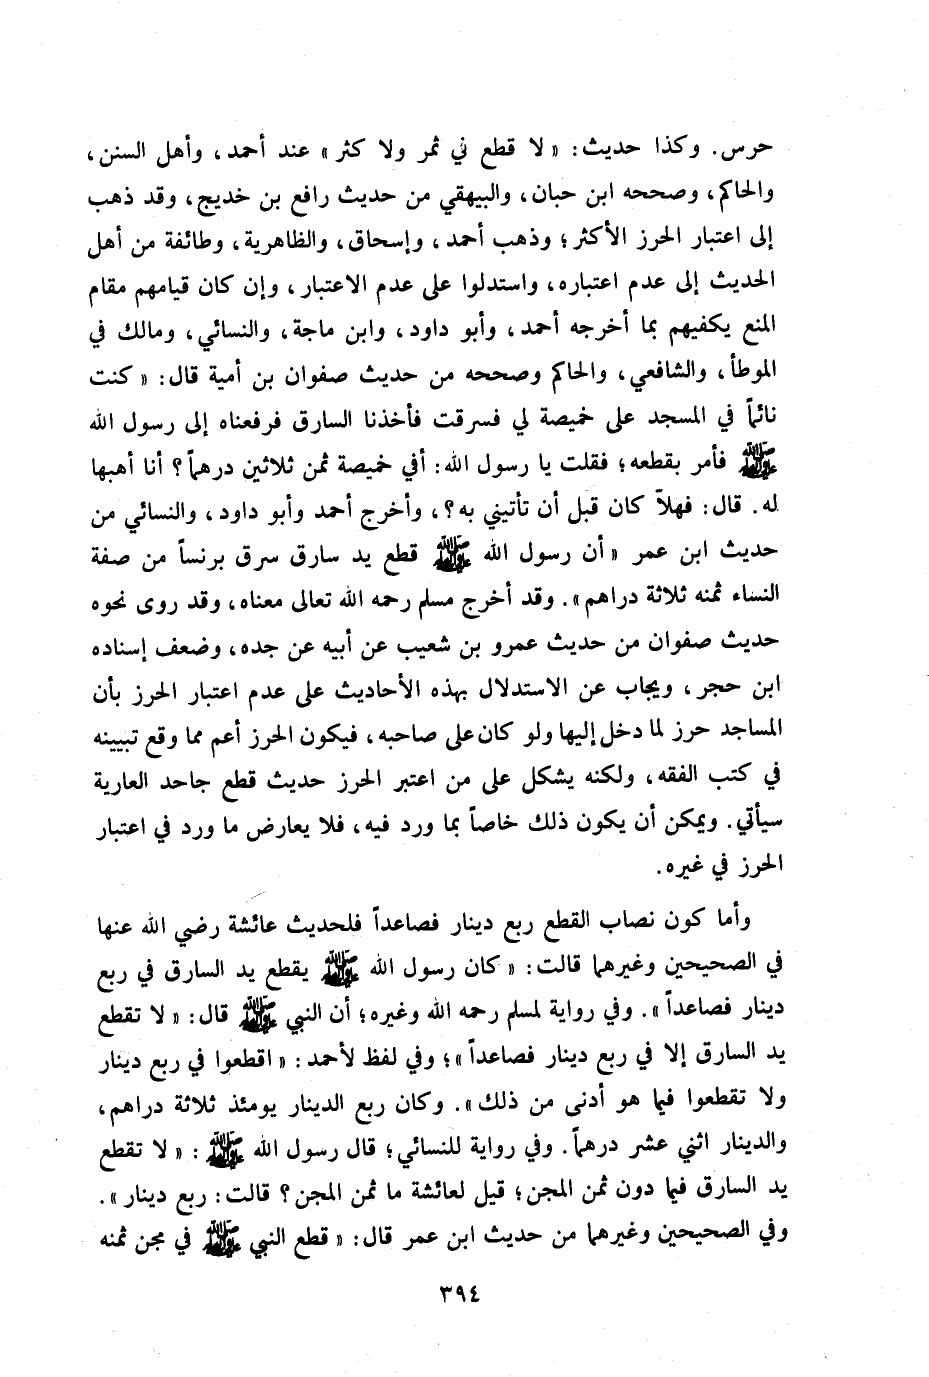 حرس. وكذا حديث: « لا قطع في ثمر ولا كثر » عند أحمد، وأهل السنن،
والحاكم، وصححه ابن حبان، والبيهقي من حديث رافع بن خديج، وقد ذهب
إلى اعتبار الحرز الأكثر؛ وذهب أحمد، وإسحاق، والظاهرية، وطائفة من أهل
الحديث إلى عدم اعتباره، واستدلوا على عدم الاعتبار، وإن كان قيامهم مقام
المنع يكفيهم بما أخرجه أحمد، وأبو داود، وابن ماجة، والنسائي، ومالك في
الموطأ، والشافعي، والحاكم وصححه من حديث صفوان بن أمية قال: « كنت
نائماً في المسجد على خميصة لي فسرقت فأخذنا السارق فرفعناه إلى رسول الله
ﷺ فأمر بقطعه؛ فقلت يا رسول الله: أفي خميصة ثمن ثلاثين درهماً؟ أنا أهبها
له. قال: فهلاّ كان قبل أن تأتيني به؟، وأخرج أحمد وأبو داود، والنسائي من
حديث ابن عمر « أن رسول الله ﷺ قطع يد سارق سرق برنساً من صفة
النساء ثمنه ثلاثة دراهم». وقد أخرج مسلم رحمه الله تعالى معناه، وقد روى نحوه
حديث صفوان من حديث عمرو بن شعيب عن أبيه عن جده، وضعف إسناده
ابن حجر، ويجاب عن الاستدلال بهذه الأحاديث على عدم اعتبار الحرز بأن
المساجد حرز لما دخل إليها ولو كان على صاحبه، فيكون الحرز أعم مما وقع تبيينه
في كتب الفقه، ولكنه يشكل على من اعتبر الحرز حديث قطع جاحد العارية
سيأتي. ويمكن أن يكون ذلك خاصاً بما ورد فيه، فلا يعارض ما ورد في اعتبار
الحرز في غيره.
وأما كون نصاب القطع ربع دينار فصاعداً فلحديث عائشة رضي الله عنها
في الصحيحين وغيرهما قالت: « كان رسول الله ﷺ يقطع يد السارق في ربع
دينار فصاعداً ». وفي رواية لمسلم رحمه الله وغيره؛ أن النبي ﷺ قال: « لا تقطع
يد السارق إلا في ربع دينار فصاعداً »؛ وفي لفظ لأحمد: « اقطعوا في ربع دينار
ولا تقطعوا فيما هو أدنى من ذلك ». وكان ربع الدينار يومئذ ثلاثة دراهم،
والدينار اثني عشر درهماً. وفي رواية للنسائي؛ قال رسول الله ﷺ : « لا تقطع
يد السارق فيما دون ثمن المجن؛ قيل لعائشة ما ثمن المجن؟ قالت: ربع دينار ».
وفي الصحيحين وغيرهما من حديث ابن عمر قال: « قطع النبي ﷺ في مجن ثمنه
٣٩٤